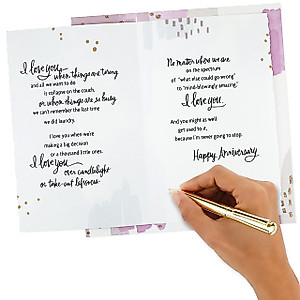 I love you—
when things are wrong
and all we want to do
is collapse on the couch,
or when things are so busy
we can't remember the last time
we did laundry.
I love you when we're
making a big decision
or a thousand little ones.
I love you
over candlelight
or take-out leftovers.
No matter where we are
on the spectrum
of "what else could go wrong"
to "mind-blowingly amazing,"
I love you.
And you might as well
get used to it,
because I'm never going to stop.
Happy Anniversary